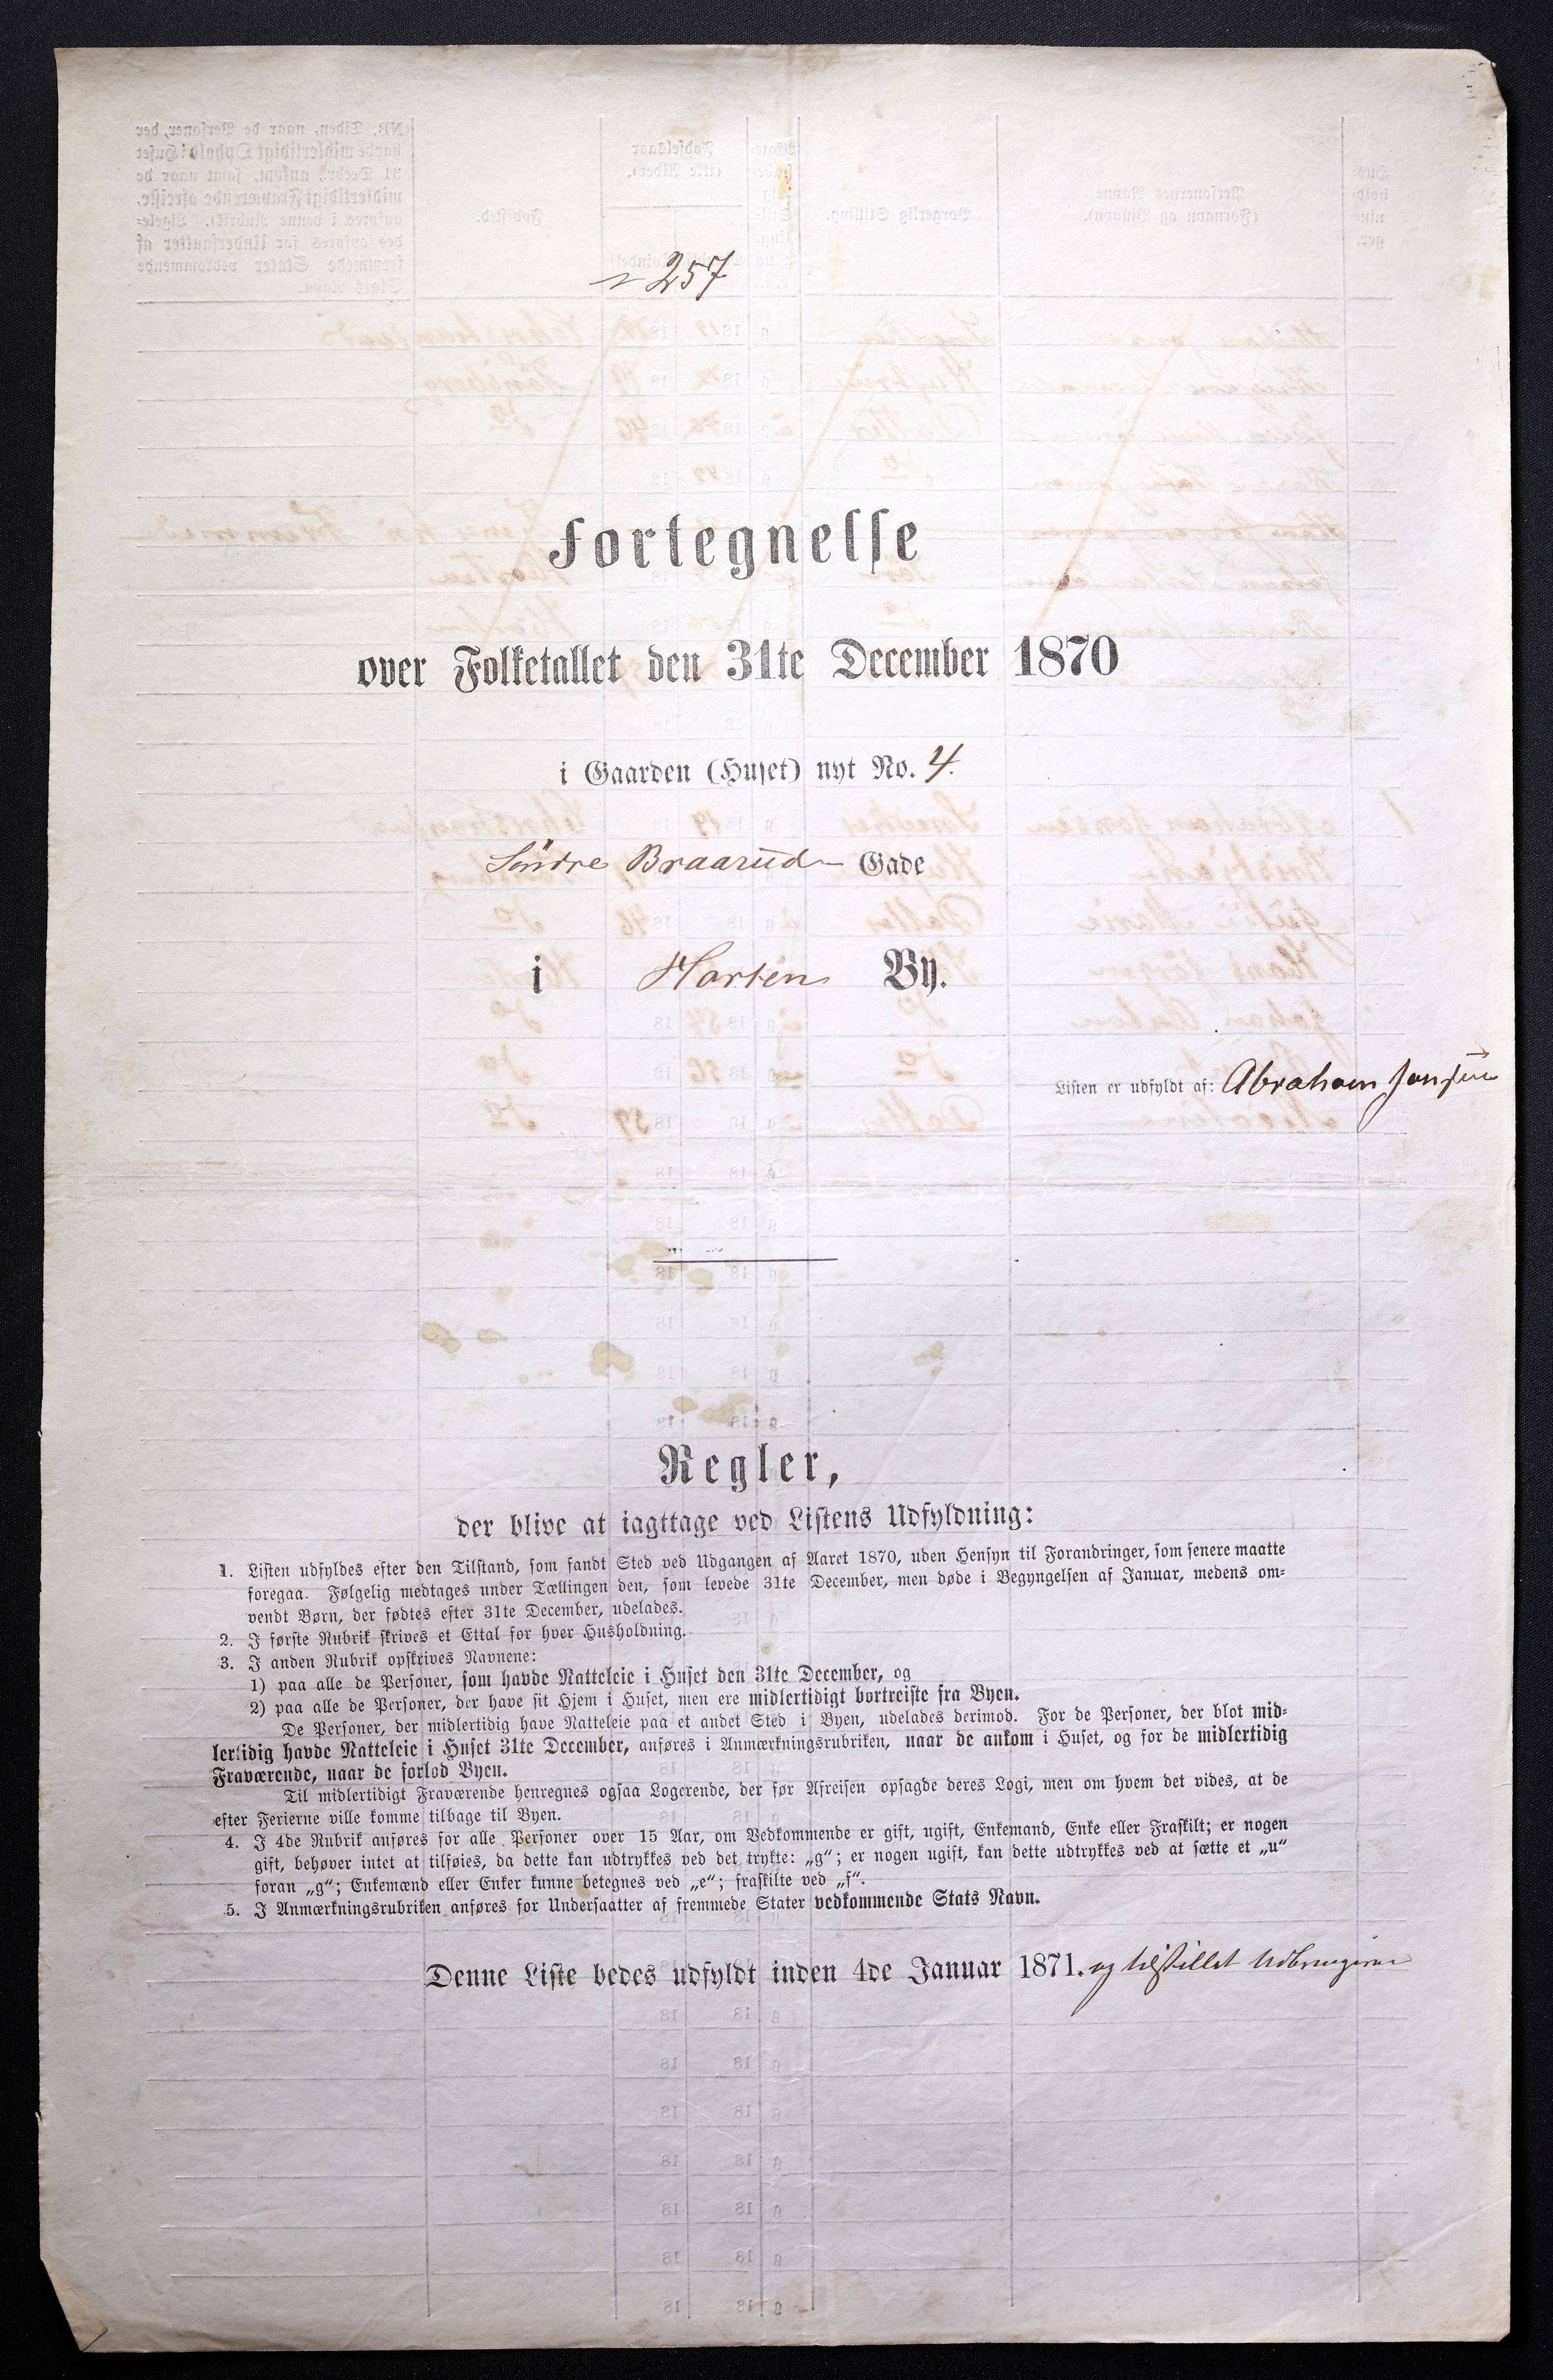 257
Fortegnelse
over Folketallet den 31te December 1870
i Gaarden (Huset) nyt No. 4.
Söndre Braarud Gade
i Horten By.
Listen er udfyldt af: Abraham Jonsen
Regler,
der blive at iagttage ved Listens Udfyldning:
1. Listen udfyldes efter den Tilstand, som fandt Sted ved Udgangen af Aaret 1870, uden Hensyn til Forandringer, som senere maatte
foregaa. Følgelig medtages under Tællingen den, som levede 31te December, men døde i Begyngelsen af Januar, medens om-
vendt Børn, der fødtes efter 31te December, udelades.
2. I første Rubrik skrives et Ettal for hver Husholdning.
3. I anden Rubrik opskrives Navnene:
1) paa alle de Personer, som havde Natteleie i Huset den 31te December, og
2) paa alle de Personer, der have sit Hjem i Huset, men ere midlertidigt bortreiste fra Byen.
De Personer, der midlertidig have Natteleie paa et andet Sted i Byen, udelades derimod. For de Personer, der blot mid-
lertidig havde Natteleie i Huset 31te December, anføres i Anmærkningsrubriken, naar de ankom i Huset, og for de midlertidig
Fraværende, naar de forlod Byen.
Til midlertidigt Fraværende henregnes ogsaa Logerende, der før Afreisen opsagde deres Logi, men om hvem det vides, at de
efter Ferierne ville komme tilbage til Byen.
4. I 4de Rubrik anføres for alle Personer over 15 Aar, om Vedkommende er gift, ugift, Enkemand, Enke eller Fraskilt; er nogen
gift, behøver intet at tilføies, da dette kan udtrykkes ved det trykte: „g“; er nogen ugift, kan dette udtrykkes ved at sætte et „u“
foran „g“; Enkemænd eller Enker kunne betegnes ved „e“; fraskilte ved „f“.
5. I Anmærkningsrubriken anføres for Undersaatter af fremmede Stater vedkommende Stats Navn.
Denne Liste bedes udfyldt inden 4de Januar 1871. og tilstillet